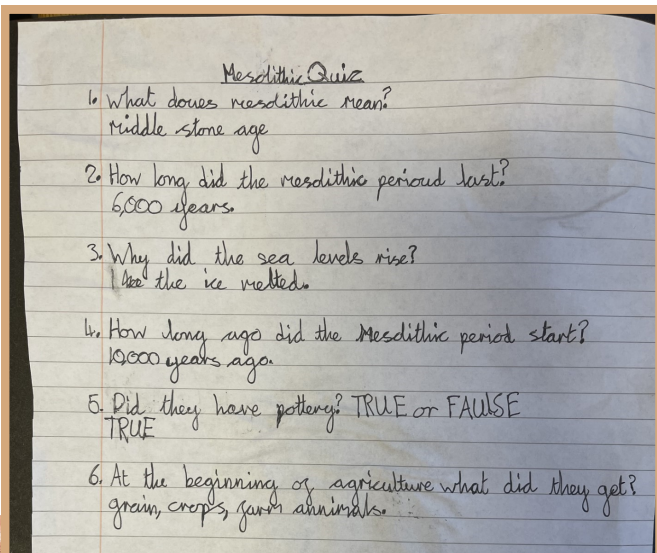 Mesolithic Quiz
1. What doues mesolithic mean?
middle stone age
2. How long did the mesolithic perioud last?
6,000 years.
3. Why did the sea levels rise?
the ice melted.
4. How long ago did the Mesolithic period start?
10,000 years ago.
5. Did they have pottery? TRUE or FAULSE
TRUE
6. At the beginning of agriculture what did they get?
grain, crops, farm annimals.